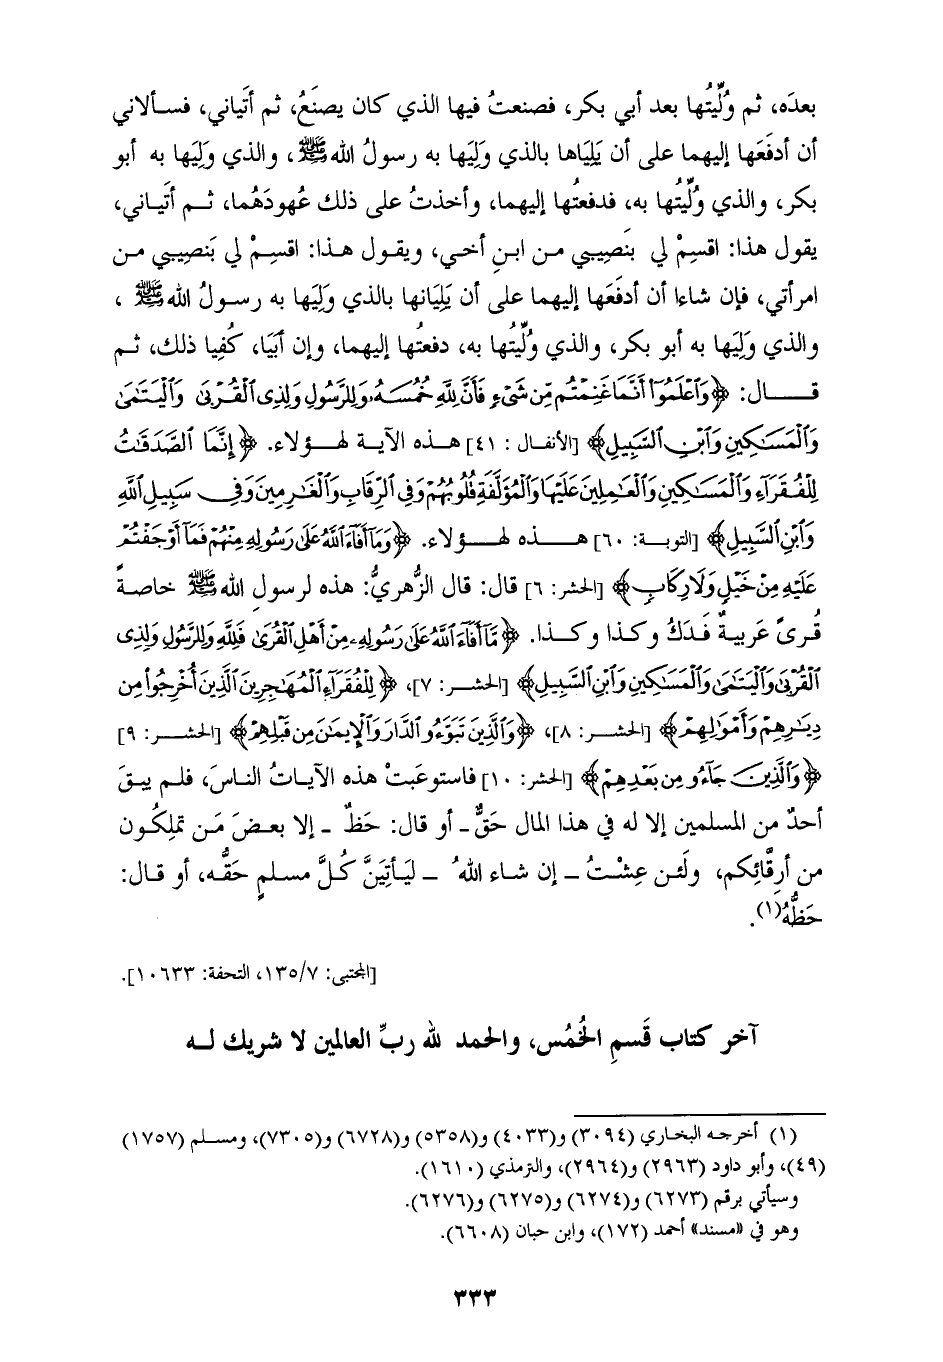 بعدَه، ثم وُلِّيتُها بعد أبي بكر، فصنعتُ فيها الذي كان يصنَعُ، ثم أتَياني، فسألاني
أن أدفَعَها إليهما على أن يَلِيَاها بالذي وَلِيَها به رسولُ الله ﷺ، والذي وَلِيَها به أبو
بكر، والذي وُلِّيتُها به، فدفعتُها إليهما، وأخذتُ على ذلك عُهودَهُما، ثم أتَياني،
يقول هذا: اقسِمْ لي بنَصِيبي من ابنِ أخي، ويقول هذا: اقسِمْ لي بَنصِيبي من
امرأتي، فإن شاءا أن أدفَعَها إليهما على أن يَلِيَانها بالذي وَلِيَها به رسولُ الله ﷺ،
والذي وَلِيَها به أبو بكر، والذي وُلِّيتُها به، دفعتُها إليهما، وإن أبَيَا، كُفِيا ذلك، ثم
قال: ﴿وَٱعْلَمُوٓا۟ أَنَّمَا غَنِمْتُم مِّن شَىْءٍ فَأَنَّ لِلَّهِ خُمُسَهُۥ وَلِلرَّسُولِ وَلِذِى ٱلْقُرْبَىٰ وَٱلْيَتَـٰمَىٰ
وَٱلْمَسَـٰكِينِ وَٱبْنِ ٱلسَّبِيلِ﴾ [الأنفال: ٤١] هذه الآية لهؤلاء. ﴿إِنَّمَا ٱلصَّدَقَـٰتُ
لِلْفُقَرَآءِ وَٱلْمَسَـٰكِينِ وَٱلْعَـٰمِلِينَ عَلَيْهَا وَٱلْمُؤَلَّفَةِ قُلُوبُهُمْ وَفِى ٱلرِّقَابِ وَٱلْغَـٰرِمِينَ وَفِى سَبِيلِ ٱللَّهِ
وَٱبْنِ ٱلسَّبِيلِ﴾ [التوبة: ٦٠] هذه لهؤلاء. ﴿وَمَآ أَفَآءَ ٱللَّهُ عَلَىٰ رَسُولِهِۦ مِنْهُمْ فَمَآ أَوْجَفْتُمْ
عَلَيْهِ مِنْ خَيْلٍ وَلَا رِكَابٍ﴾ [الحشر: ٦] قال: قال الزُّهريُّ: هذه لرسولِ الله ﷺ خاصةً
قُرىً عَربيةٌ فَدَكُ وكذا وكذا. ﴿مَّآ أَفَآءَ ٱللَّهُ عَلَىٰ رَسُولِهِۦ مِنْ أَهْلِ ٱلْقُرَىٰ فَلِلَّهِ وَلِلرَّسُولِ وَلِذِى
ٱلْقُرْبَىٰ وَٱلْيَتَـٰمَىٰ وَٱلْمَسَـٰكِينِ وَٱبْنِ ٱلسَّبِيلِ﴾ [الحشر: ٧]، ﴿لِلْفُقَرَآءِ ٱلْمُهَـٰجِرِينَ ٱلَّذِينَ أُخْرِجُوا۟ مِن
دِيَـٰرِهِمْ وَأَمْوَٰلِهِمْ﴾ [الحشر: ٨]، ﴿وَٱلَّذِينَ تَبَوَّءُو ٱلدَّارَ وَٱلْإِيمَـٰنَ مِن قَبْلِهِمْ﴾ [الحشر: ٩]
﴿وَٱلَّذِينَ جَآءُو مِنۢ بَعْدِهِمْ﴾ [الحشر: ١٠] فاستوعَبتْ هذه الآياتُ الناسَ، فلم يبقَ
أحدٌ من المسلمين إلا له في هذا المال حَقٌّ - أو قال: حَظٌّ - إلا بعضَ مَن تملِكُون
من أرِقَّائِكم، ولَئن عِشْتُ - إن شاء اللهُ - ليَأتِيَنَّ كُلَّ مسلمٍ حَقُّه، أو قال:
حَظُّهُ(١).
[المجتبى: ١٣٥/٧، التحفة: ١٠٦٣٣].
آخر كتاب قَسمِ الخُمُس، والحمد لله ربِّ العالمين لا شريك له
(١) أخرجه البخاري (٣٠٩٤) و(٤٠٣٣) و(٥٣٥٨) و(٦٧٢٨) و(٧٣٠٥)، ومسلم (١٧٥٧)
(٤٩)، وأبو داود (٢٩٦٣) و(٢٩٦٤)، والترمذي (١٦١٠).
وسيأتي برقم (٦٢٧٣) و(٦٢٧٤) و(٦٢٧٥) و(٦٢٧٦).
وهو في «مسند» أحمد (١٧٢)، وابن حبان (٦٦٠٨).
٣٣٣